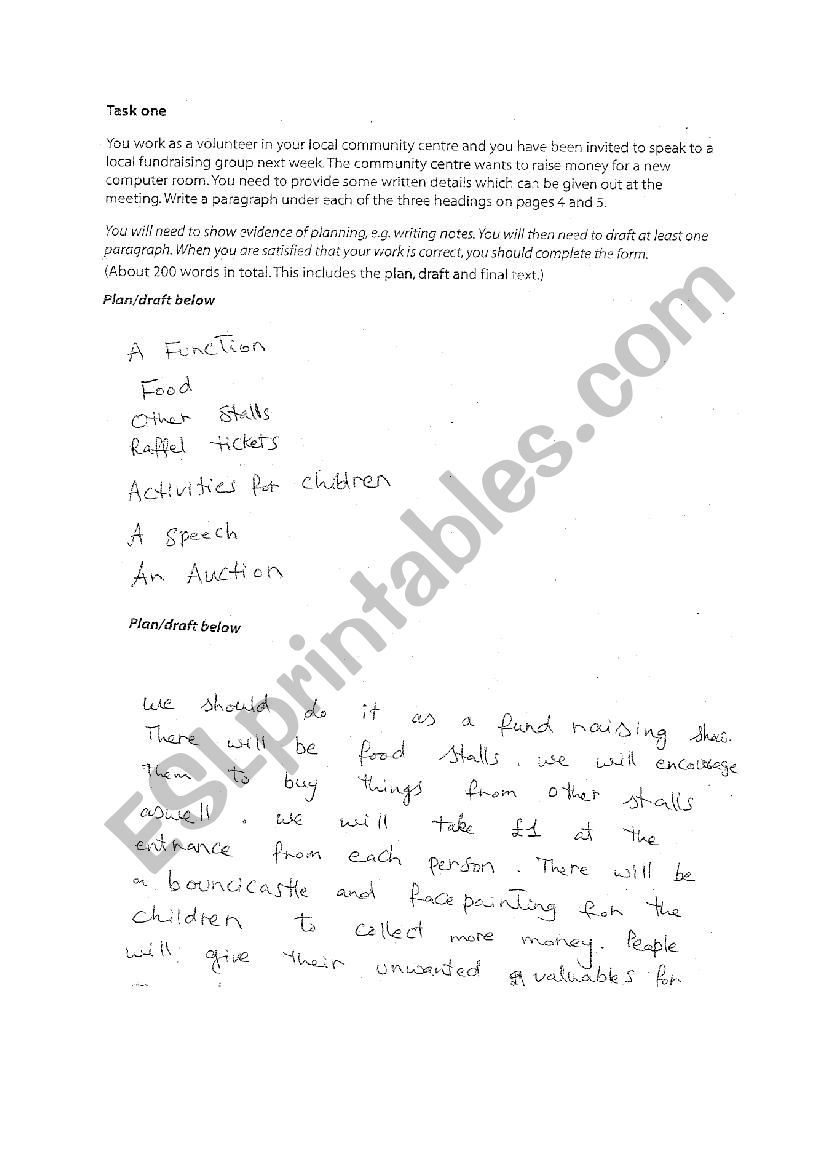 Task one
You work as a volunteer in your local community centre and you have been invited to speak to a
local fundraising group next week. The community centre wants to raise money for a new
computer room. You need to provide some written details which can be given out at the
meeting. Write a paragraph under each of the three headings on pages 4 and 5.
You will need to show evidence of planning, e.g. writing notes. You will then need to draft at least one
paragraph. When you are satisfied that your work is correct, you should complete the form.
(About 200 words in total. This includes the plan, draft and final text.)
Plan/draft below
A Function
Food
Other Stalls
Raffel tickets
Activities for children
A speech
An Auction
Plan/draft below
we should do it as a fund raising
There will be food stalls. we will encourage
them to buy things from other stalls
aswell. we will take £1 at the
entrance from each person. There will be
a bouncicastle and face painting for the
children to collect more money. People
will give their unwanted valuables for
ESLprintables.com